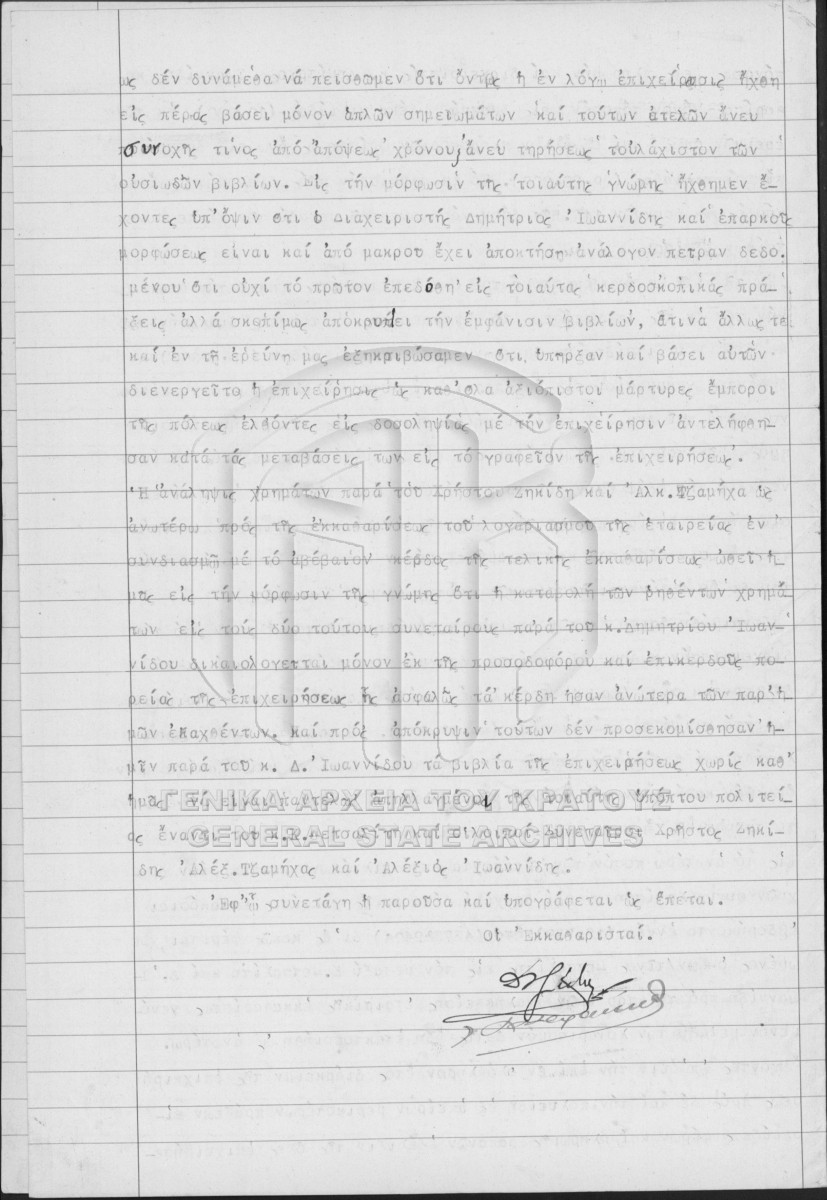 ως δέν δυνάμεθα νά πεισθῶμεν ὅτι ὄντως ἡ ἐν λόγῳ ἐπιχείρησις ἤχθη
εἰς πέρας βάσει μόνον ἁπλῶν σημειωμάτων καί τούτων ἀτελῶν ἄνευ
συνοχῆς τινός ἀπό ἀπόψεως χρόνου, ἄνευ τηρήσεως τοὐλάχιστον τῶν
οὐσιωδῶν βιβλίων. Εἰς τήν μόρφωσιν τῆς τοιαύτης γνώμης ἤχθημεν ἔ-
χοντες ὑπ'ὄψιν ὅτι ὁ Διαχειριστής Δημήτριος Ἰωαννίδης καί ἐπαρκοῦς
μορφώσεως εἶναι καί ἀπό μακροῦ ἔχει ἀποκτήσῃ ἀνάλογον πεῖραν δεδο.
μένου ὅτι οὐχί τό πρῶτον ἐπεδόθη εἰς τοιαύτας κερδοσκοπικάς πρά-
ξεις ἀλλά σκοπίμως ἀποκρύπτει τήν ἐμφάνισιν βιβλίων, ἅτινά ἄλλως τε
καί ἐν τῇ ἐρεύνῃ μας ἐξηκριβώσαμεν ὅτι ὑπῆρξαν καί βάσει αὐτῶν
διενεργεῖτο ἡ ἐπιχείρησις ὡς καθ'ὅλα ἀξιόπιστοι μάρτυρες ἔμποροι
τῆς πόλεως ἐλθόντες εἰς δοσοληψίας μέ τήν ἐπιχείρησιν ἀντελήφθη-
σαν κατά τάς μεταβάσεις των εἰς τό γραφεῖον τῆς ἐπιχειρήσεως.
Ἡ ἀνάληψις χρημάτων παρά τοῦ Χρήστου Ζηκίδη καί Ἀλκ.Τζαμήχα ὡς
ἀνωτέρω πρός τῆς ἐκκαθαρίσεως τοῦ λογαριασμοῦ τῆς ἑταιρείας ἐν
συνδιασμῷ μέ τό ἀβέβαιον κέρδος τῆς τελικῆς ἐκκαθαρίσεως ὠθεῖ ἡ-
μᾶς εἰς τήν μόρφωσιν τῆς γνώμης ὅτι ἡ καταβολή τῶν ρηθέντων χρημά
των εἰς τούς δύο τούτους συνεταίρους παρά τοῦ κ.Δημητρίου Ἰωαν-
νίδου δικαιολογεῖται μόνον ἐκ τῆς προσοδοφόρου καί ἐπικερδοῦς πο-
ρείας τῆς ἐπιχειρήσεως ἧς ἀσφαλῶς τά κέρδη ἦσαν ἀνώτερα τῶν παρ'ἡ-
μῶν ἐξαχθέντων. Καί πρός ἀπόκρυψιν τούτων δέν προσεκομίσθησαν ἡ-
μῖν παρά τοῦ κ. Δ. Ἰωαννίδου τά βιβλία τῆς ἐπιχειρήσεως χωρίς καθ'
ἡμᾶς νά εἶναι παντελῶς ἀπηλλαγμένοι τῆς τοιαύτης ὑπόπτου πολιτεί-
ας ἔναντι τοῦ κ. καί οἱ λοιποί Συνεταῖροι Χρῆστος Ζηκί-
δης Ἀλέξ.Τζαμήχας καί Ἀλέξιος Ἰωαννίδης.
Ἐφ'ᾧ συνετάγη ἡ παροῦσα καί ὑπογράφεται ὡς ἕπεται.
Οἱ Ἐκκαθαρισταί.
ΓΕΝΙΚΑ ΑΡΧΕΙΑ ΤΟΥ ΚΡΑΤΟΥΣ
GENERAL STATE ARCHIVES